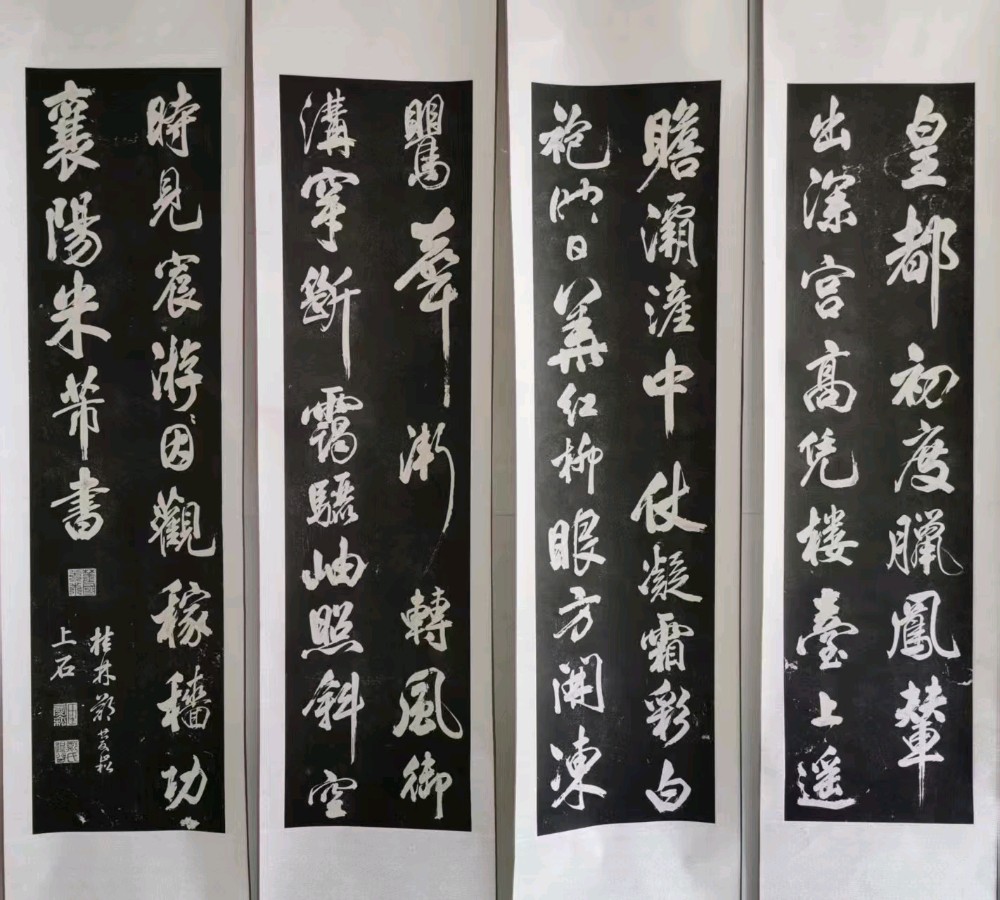 皇都初度臘鳳輦
出深宮高凭樓臺上遥
瞻灞滻中仗凝霜彩白
袍映日華紅柳眼方開凍
鸎聲漸轉風御
溝穿斷靄驪岫照斜空
時見宸游因觀稼穡功
襄陽米芾書
桂林
上石